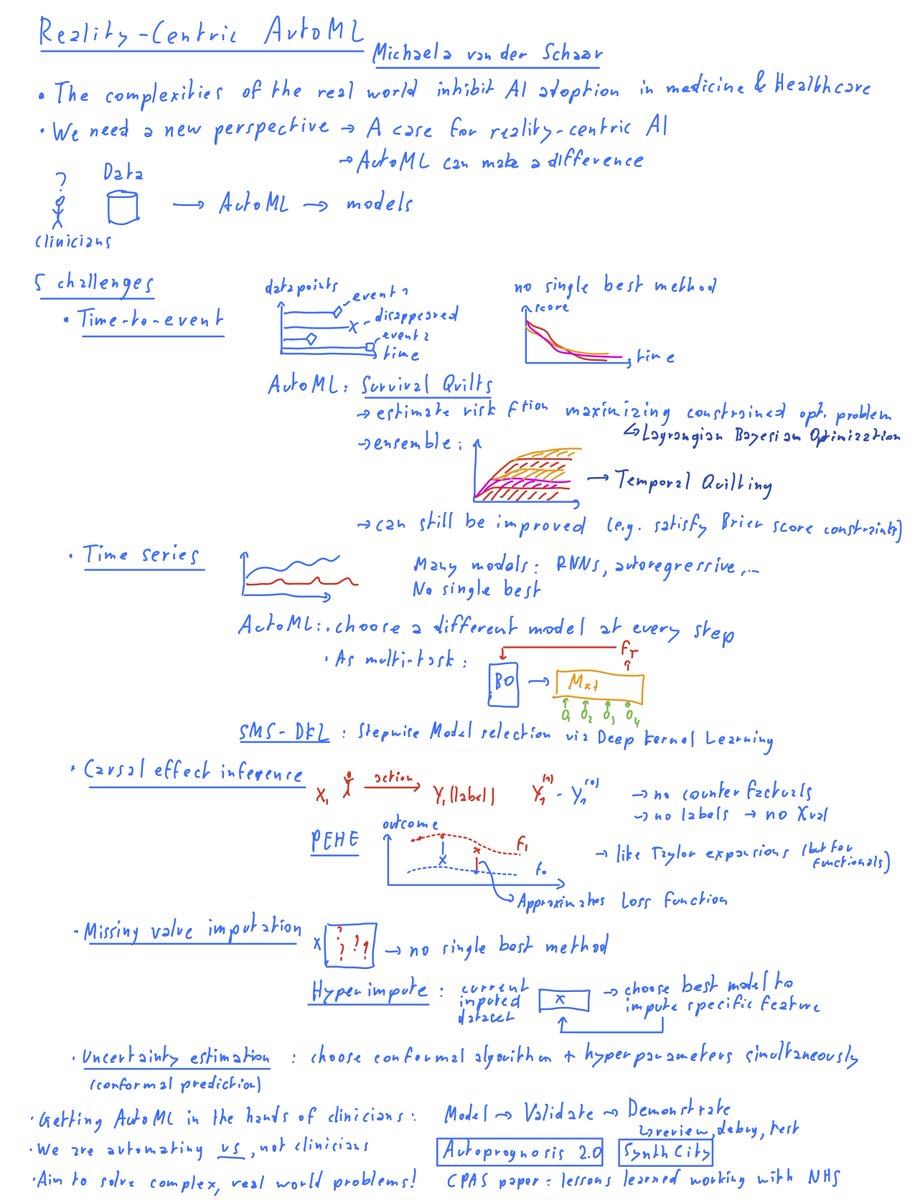 Reality-Centric AutoML
Michaela van der Schaar
• The complexities of the real world inhibit AI adoption in medicine & Healthcare
• We need a new perspective → A case for reality-centric AI
→ AutoML can make a difference
? Data
→ AutoML → models
clinicians
5 challenges
• Time-to-event
datapoints
event 1
x - disappeared
event 2
time
no single best method
score
time
AutoML: Survival Quilts
→ estimate risk ftion maximizing constrained opt. problem
↳ Lagrangian Bayesian Optimization
→ ensemble:
→ Temporal Quilting
→ can still be improved (e.g. satisfy Brier score constraints)
• Time series
Many models: RNNs, autoregressive,...
No single best
AutoML: • choose a different model at every step
• As multi-task:
BO → M_{x,t}
F_T
O_1 O_2 O_3 O_4
SMS-DKL : Stepwise Model selection via Deep Kernel Learning
• Causal effect inference
X_1 action → Y_1 (label) Y_1^{(1)} - Y_1^{(0)}
→ no counterfactuals
→ no labels → no Xval
PEHE
outcome
F_1
F_0
→ like Taylor expansions (but for functionals)
→ Approximates Loss Function
- Missing value imputation
X ? ? ? ? → no single best method
Hyperimpute : current imputed dataset
x
→ choose best model to impute specific feature
• Uncertainty estimation : choose conformal algorithm + hyperparameters simultaneously
(conformal prediction)
• Getting AutoML in the hands of clinicians: Model → Validate → Demonstrate
↳ review, debug, test
• We are automating us, not clinicians
Autoprognosis 2.0 SynthCity
• Aim to solve complex, real world problems! CPAS paper: lessons learned working with NHS